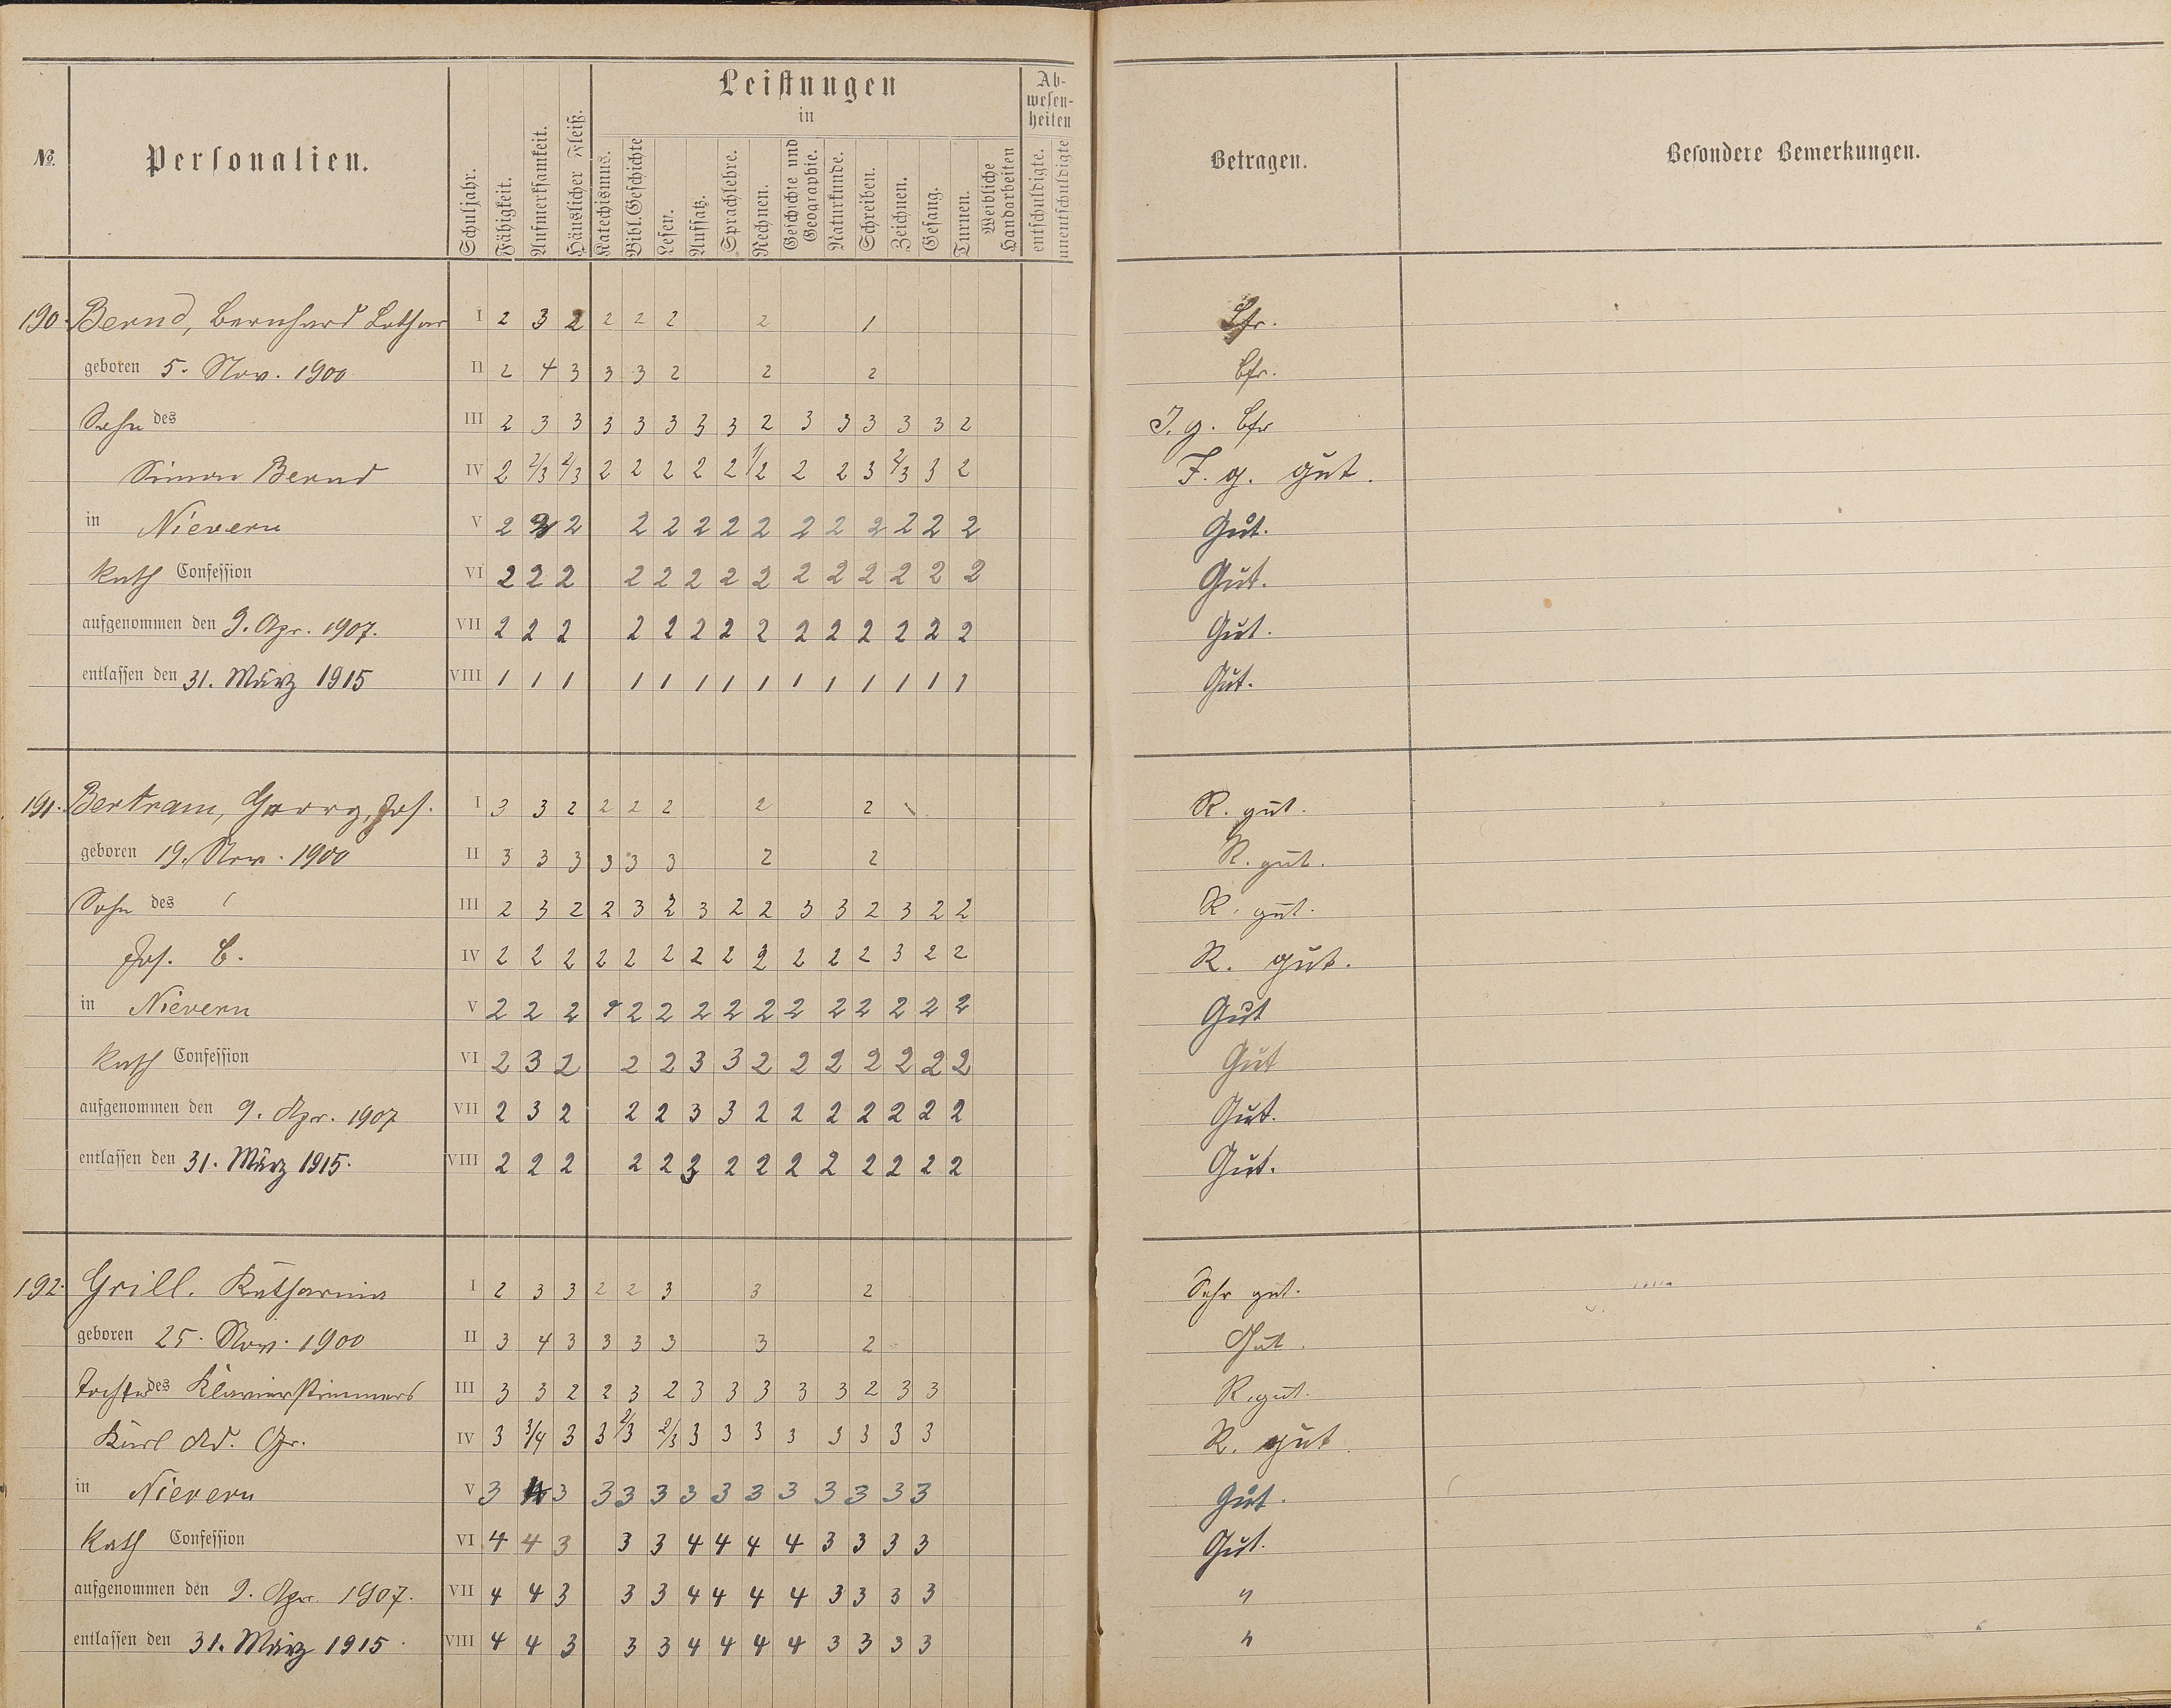 Leistungen
in
Ab-
wesen-
heiten
№.
Personalien.
Schuljahr.
Fähigkeit.
Aufmerksamkeit.
Häuslicher Fleiß.
Katechismus.
Bibl. Geschichte
Lesen.
Aufsatz.
Sprachlehre.
Rechnen.
Geschichte und
Geographie.
Naturkunde.
Schreiben.
Zeichnen.
Gesang.
Turnen.
Weibliche
Handarbeiten
entschuldigte.
unentschuldigte
Betragen.
Besondere Bemerkungen.
190. Bernd, Bernhard Lothar I 2 3 2 2 2 2 2 1 Bfr.
geboren 5. Nov. 1900 II 2 4 3 3 3 2 2 2 bfr.
Sohn des III 2 3 3 3 3 3 3 3 2 3 3 3 3 3 2 I. g. bfr
Simon Bernd IV 2 2/3 2/3 2 2 2 2 2 1/2 2 2 3 2/3 3 2 I. g. gut.
in Nievern V 2 2 2 2 2 2 2 2 2 2 2 2 2 Gut.
Kath Confession VI 2 2 2 2 2 2 2 2 2 2 2 2 2 2 Gut.
aufgenommen den 9. Apr. 1907. VII 2 2 2 2 2 2 2 2 2 2 2 2 2 2 Gut.
entlassen den 31. März 1915 VIII 1 1 1 1 1 1 1 1 1 1 1 1 1 1 Gut.
191. Bertram, Georg, Jos. I 3 3 2 2 2 2 2 2 R. gut.
geboren 19. Nov. 1900 II 3 3 3 3 3 3 2 2 R. gut.
Sohn des III 2 3 2 2 3 2 3 2 2 3 3 2 3 2 2 R. gut.
Jos. B. IV 2 2 2 2 2 2 2 2 2 2 2 2 3 2 2 R. gut.
in Nievern V 2 2 2 2 2 2 2 2 2 2 2 2 2 2 Gut
Kath Confession VI 2 3 2 2 2 3 3 2 2 2 2 2 2 2 Gut
aufgenommen den 9. Apr. 1907 VII 2 3 2 2 2 3 3 2 2 2 2 2 2 2 Gut.
entlassen den 31. März 1915. VIII 2 2 2 2 2 3 2 2 2 2 2 2 2 2 Gut.
192. Grill. Katharina I 2 3 3 2 2 3 3 2 Sehr gut.
geboren 25. Nov. 1900 II 3 4 3 3 3 3 3 2 Gut.
Tochter des Klavierstimmers III 3 3 2 2 3 2 3 3 3 3 3 2 3 3 R. gut.
Karl Ad. Gr. IV 3 3/4 3 3 2/3 2/3 3 3 3 3 3 3 3 3 R. gut
in Nievern V 3 4 3 3 3 3 3 3 3 3 3 3 3 3 Gut.
Kath Confession VI 4 4 3 3 3 4 4 4 4 3 3 3 3 Gut.
aufgenommen den 9. Apr. 1907. VII 4 4 3 3 3 4 4 4 4 3 3 3 3 "
entlassen den 31. März 1915. VIII 4 4 3 3 3 4 4 4 4 3 3 3 3 "